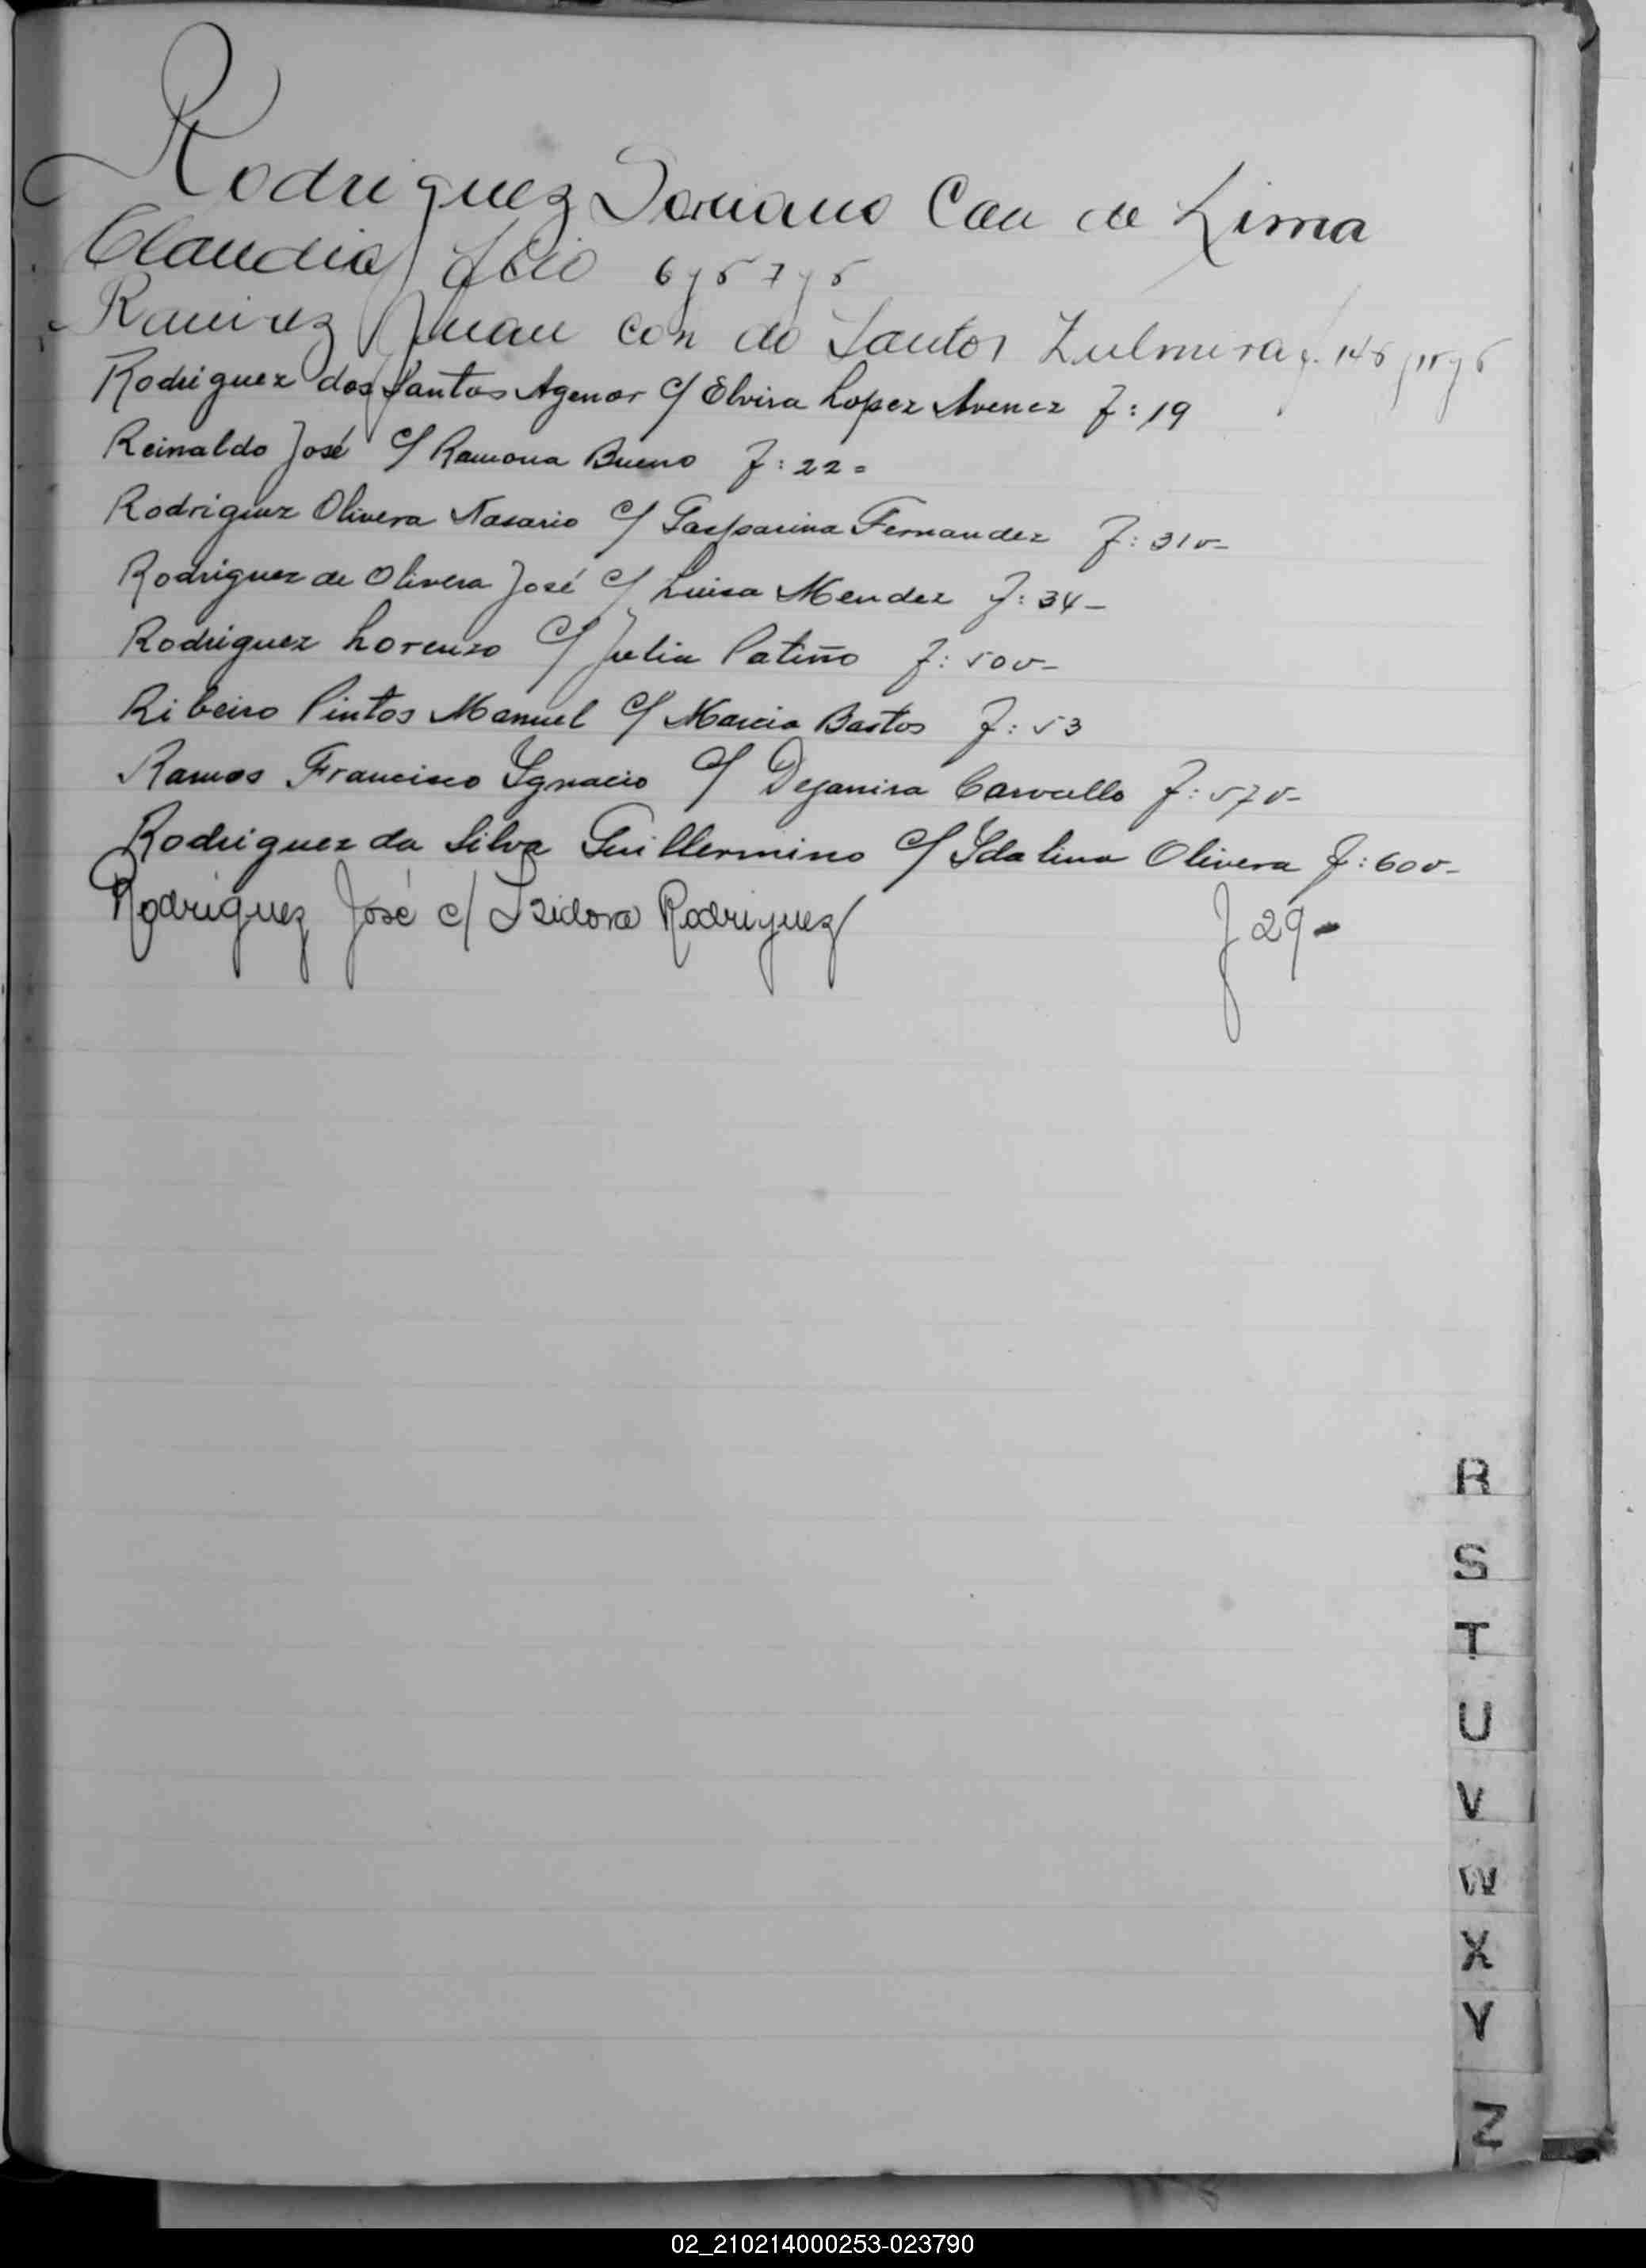 Rodriguez Soriano Con de Lima
Claudia folio 6 y 6 7 y 6
Ramirez Juan con do Santos Zulmira f. 146
Rodriguez dos Santos Agenor c/ Elvira Lopez f: 19
Reinaldo José c/ Ramona Bueno f: 22=
Rodriguez Olivera Nasario c/ Gasparina Fernandez f: 31v-
Rodriguez de Olivera José c/ Luisa Mendez f: 34-
Rodriguez Lorenzo c/ Julia Patiño f: 50v-
Ribeiro Pintos Manuel c/ Marcia Bastos f: 53
Ramos Francisco Ygnacio c/ Deyanira Carvallo f: 57v-
Rodriguez da Silva Guillermino c/ Ydalina Olivera f: 60v-
Rodriguez José c/ Isidora Rodriguez f 29-
R
S
T
U
V
W
X
Y
Z
02_210214000253-023790